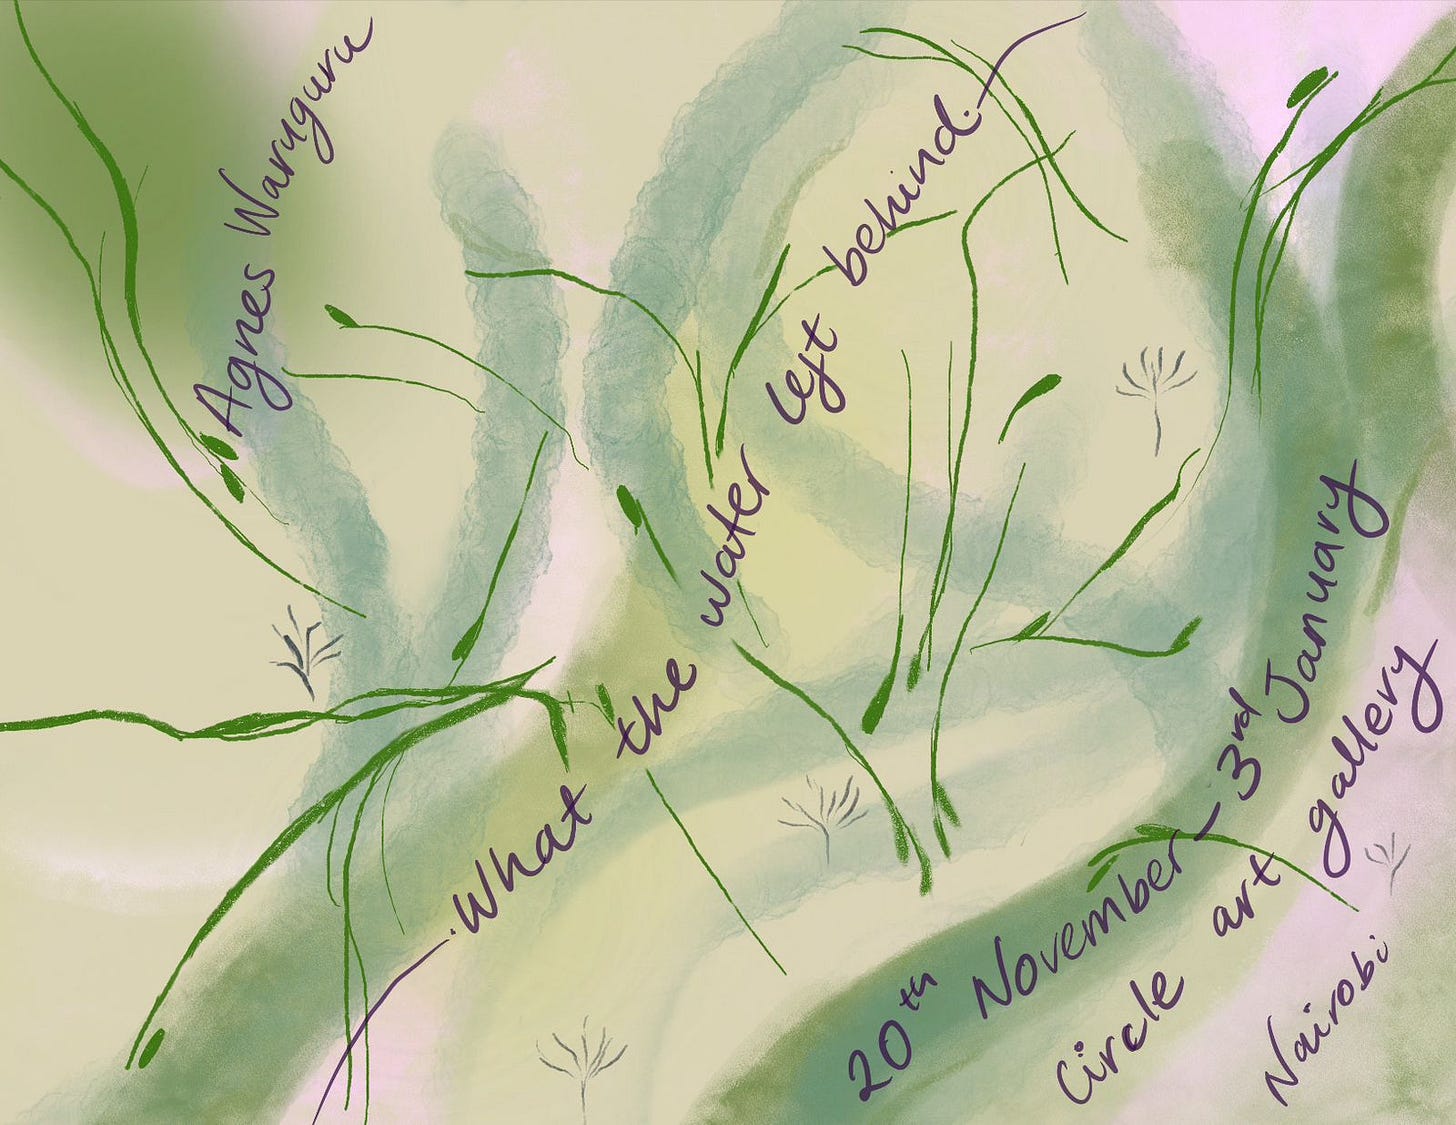 Agnes Waruguru
What the water left behind.
20th November - 3rd January
Circle art gallery
Nairobi